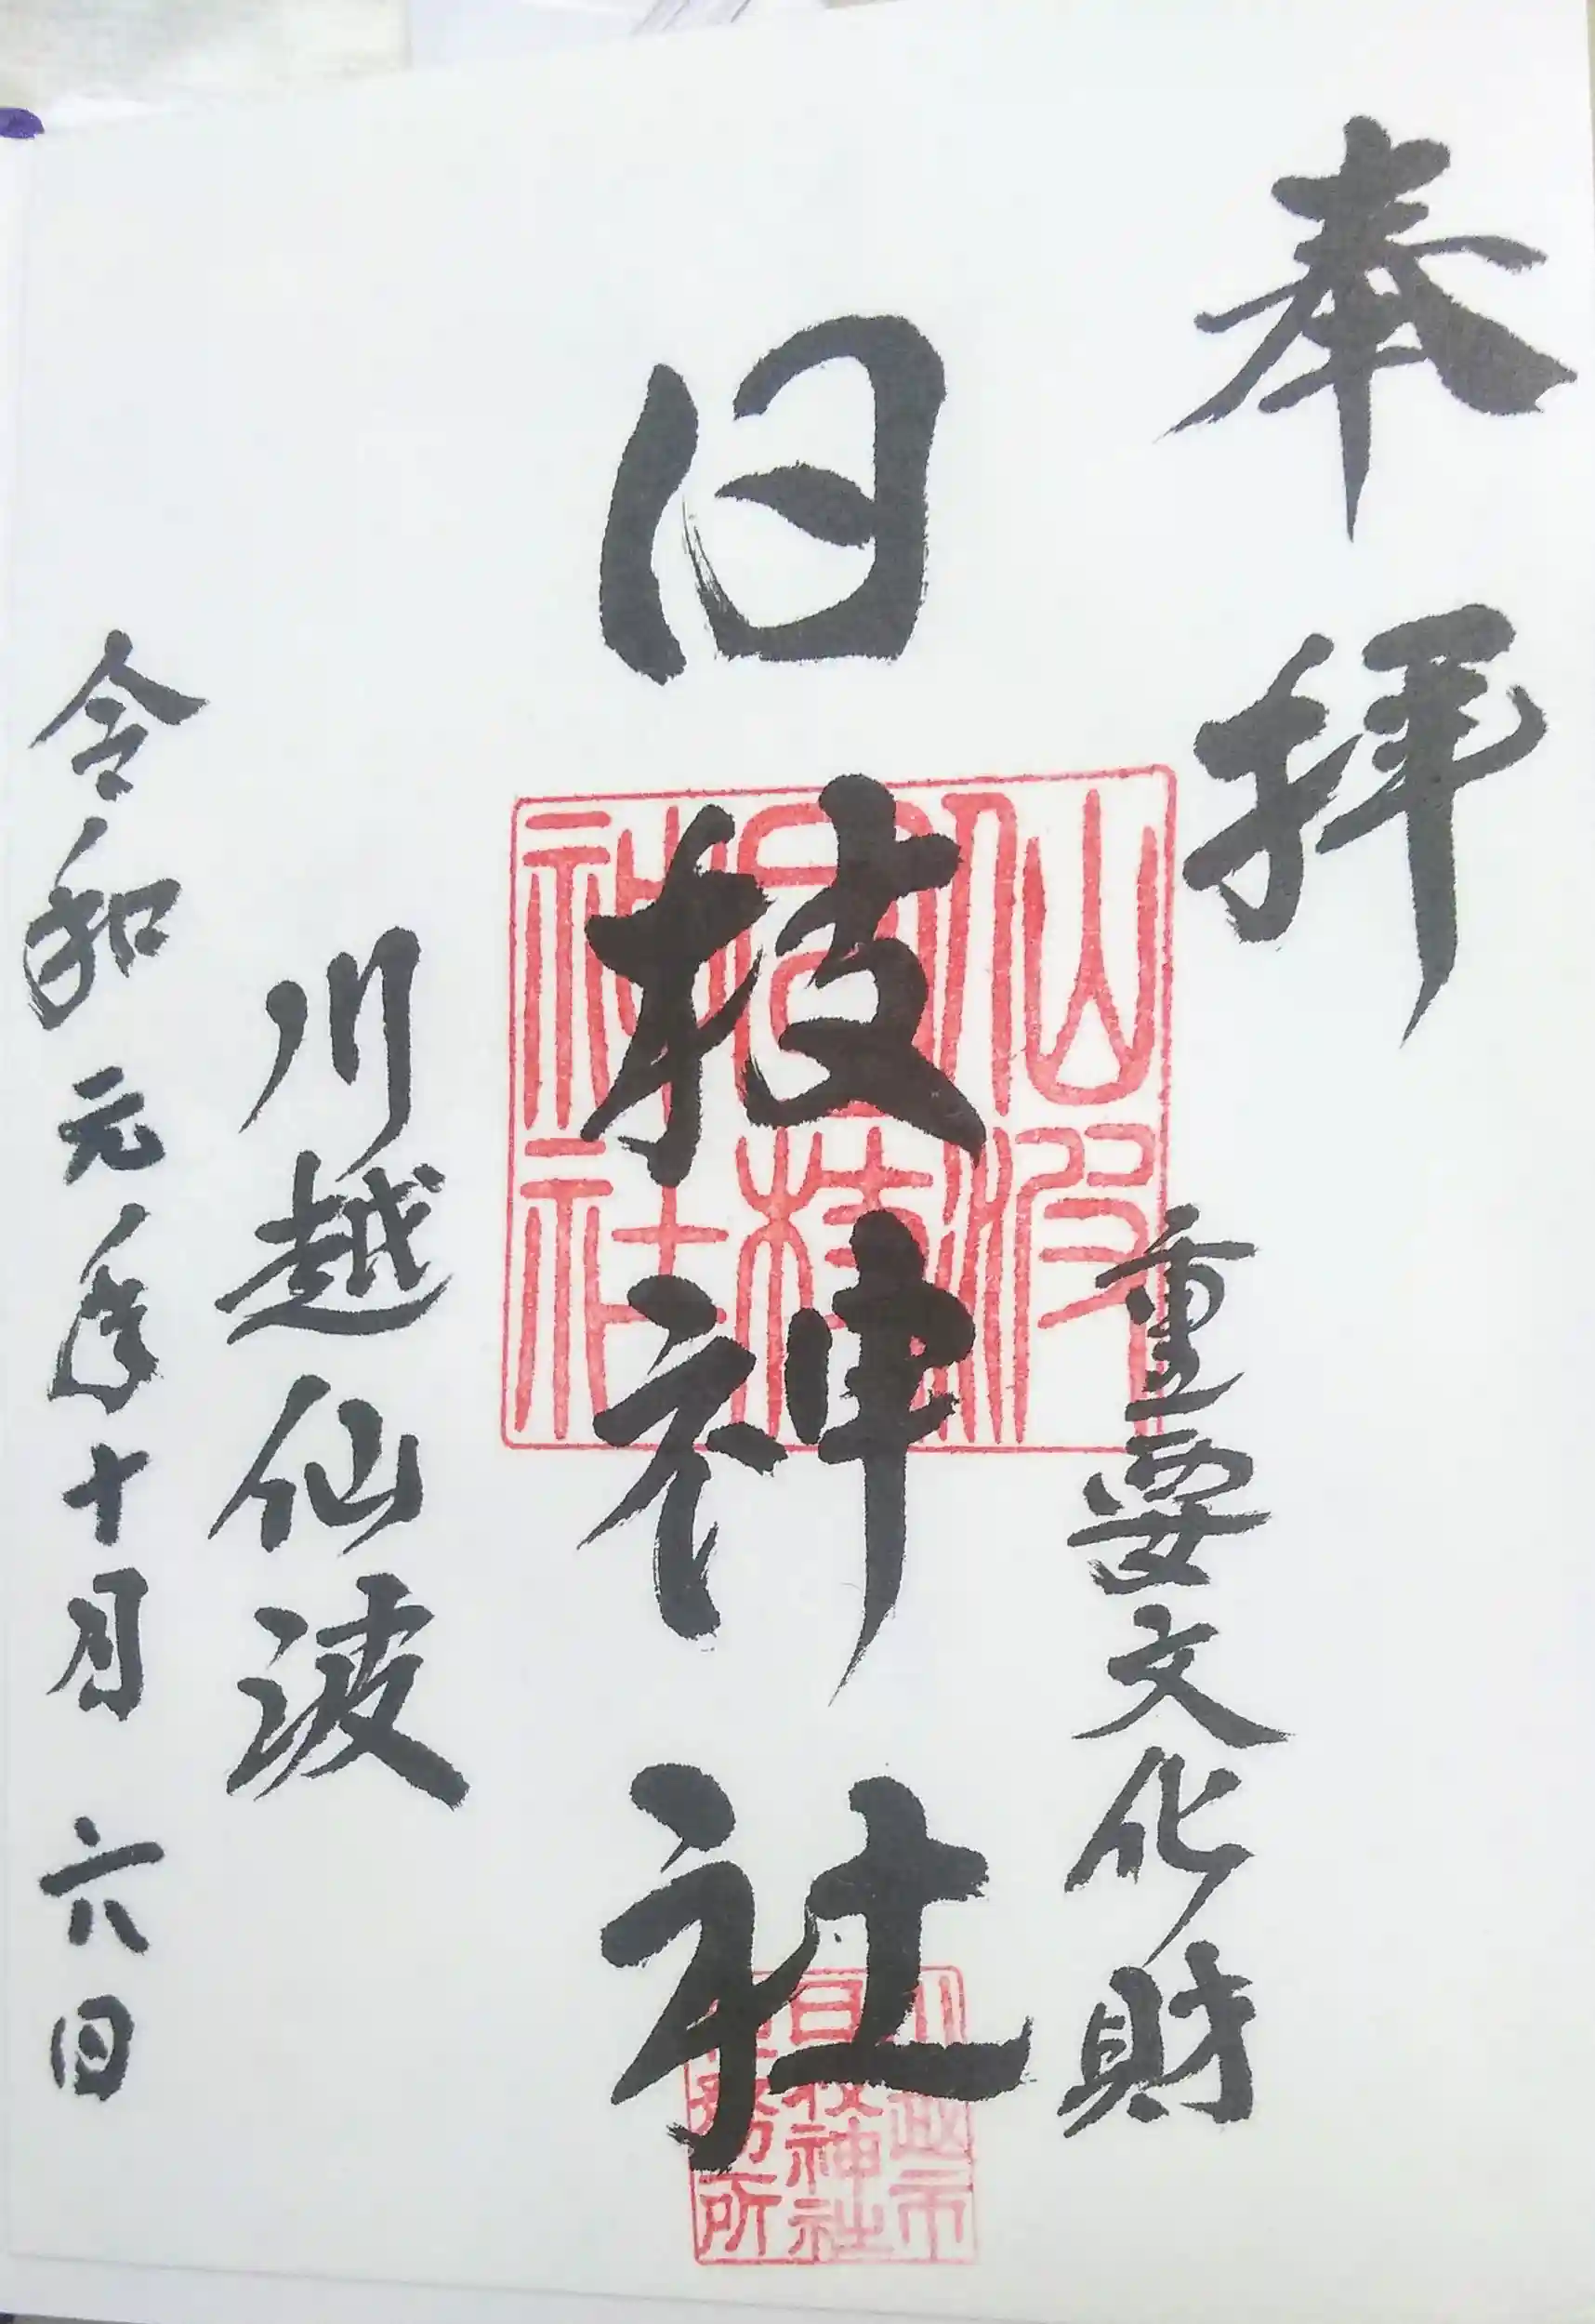 奉拝
重要文化財
日枝神社
川越仙波
令和元年十月六日
仙波
日枝
神社
川越市
日枝神社
務所